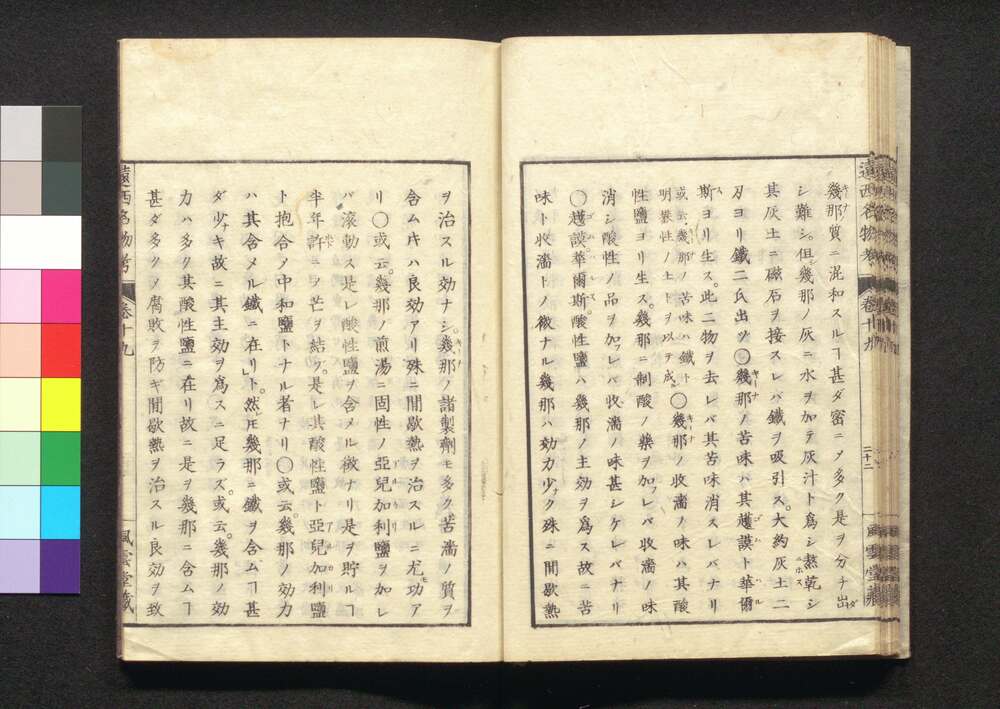 遠西名物考 卷十九 二十二 風雲堂藏
幾那質ニ混和スルヿ甚ダ密ニメ多ク是ヲ分チ出
シ難シ。但幾那ノ灰ニ水ヲ加テ灰汁ト爲シ熬乾シ
其灰土ニ磁石ヲ接スレバ鐵ヲ吸引ス。大約灰土二
刄ヨリ鐵二氏出ヅ〇幾那ノ苦味ハ其護謨ト華爾
斯ヨリ生ス。此二物ヲ去レバ其苦味消スレバナリ
或云幾那ノ苦味ハ鐵ト
明礬性ノ土トヲ以テ成
〇幾那ノ收濇ノ味ハ其酸
性鹽ヨリ生ス。幾那ニ制酸ノ藥ヲ加フレバ收濇ノ味
消シ酸性ノ品ヲ加フレバ收濇ノ味甚シケレバナリ
〇護謨華爾斯。酸性鹽ハ幾那ノ主効ヲ爲ス故ニ苦
味ト收濇トノ微ナル幾那ハ効力少ク殊ニ間歇熱
ヲ治スル効ナシ。幾那ノ諸製劑モ多ク苦濇ノ質ヲ
含ムキハ良効アリ殊ニ間歇熱ヲ治スルニ尤功ア
リ〇或云。幾那ノ煎湯ニ固性ノ亞兒加利鹽ヲ加レ
バ滚動ス是レ酸性鹽ヲ含メル徴ナリ是ヲ貯ルヿ
半年許ニメ芒ヲ結ブ。是レ其酸性鹽ト亞兒加利鹽
ト抱合メ中和鹽トナル者ナリ〇或云。幾那ノ効力
ハ其含メル鐵ニ在リト。然ㇳモ幾那ニ鐵ヲ含ムヿ甚
ダ少キ故ニ其主効ヲ爲スニ足ラズ。或云。幾那ノ効
力ハ多ク其酸性鹽ニ在リ故ニ是ヲ幾那ニ含ムヿ
甚ダ多クメ腐敗ヲ防ギ間歇熱ヲ治スル良効ヲ致
遠西名物考 卷十九 風雲堂藏